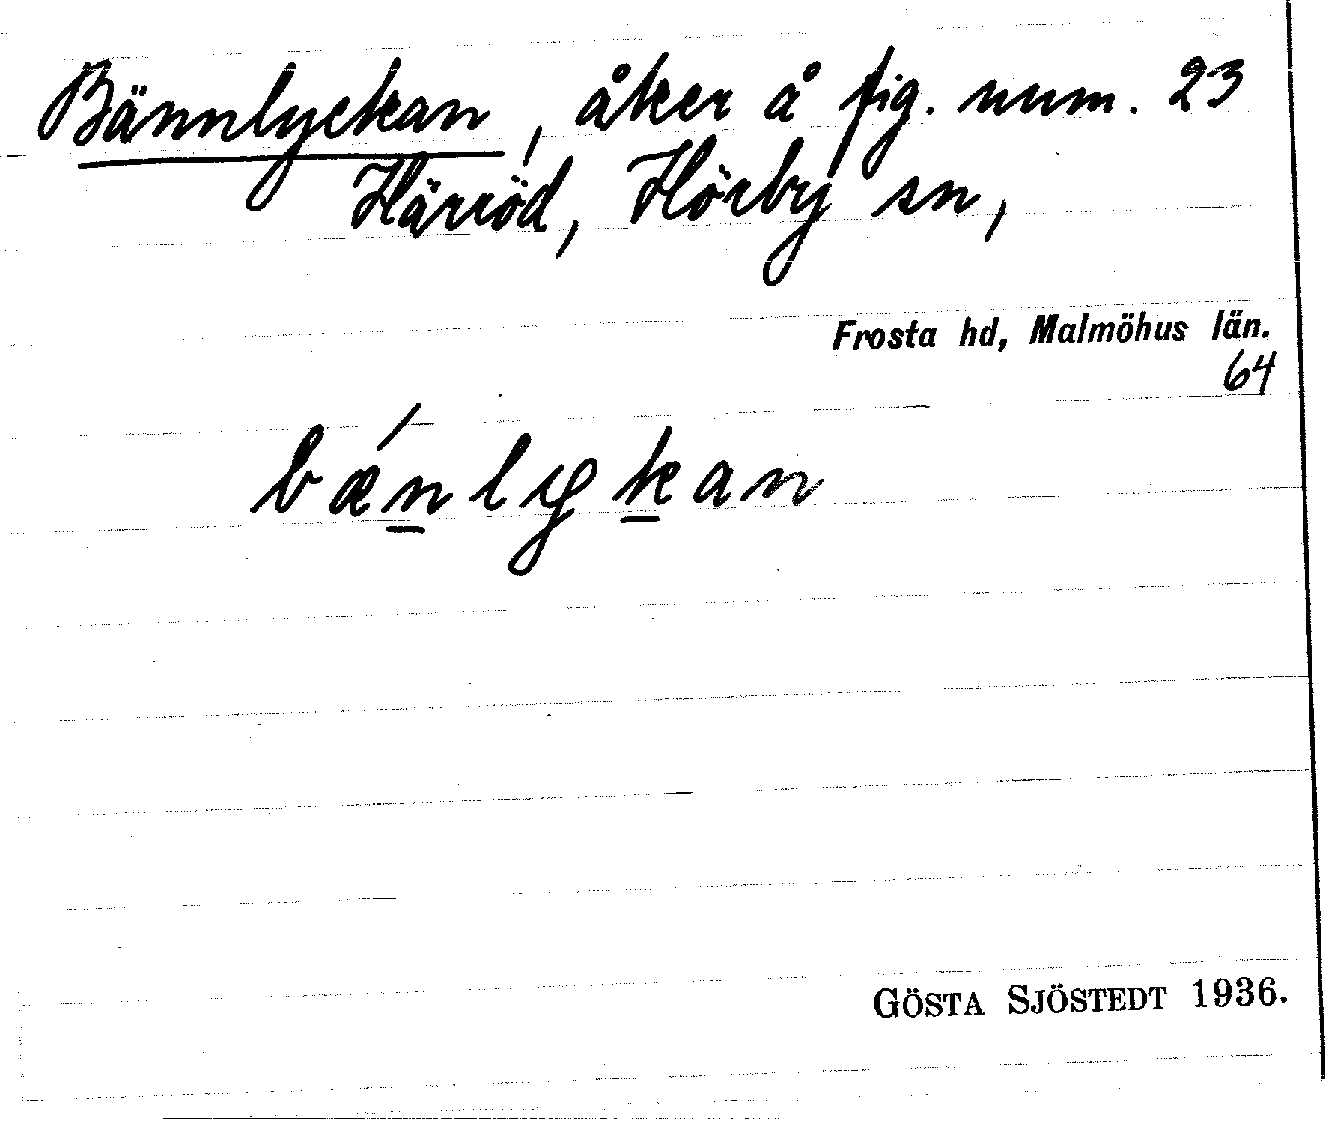 Bännlyckan, åker å fig. num. 23
Härröd, Hörby sn,
Frosta hd, Malmöhus län.
64
bæ´n̲lyk̲an
GÖSTA SJÖSTEDT 1936.